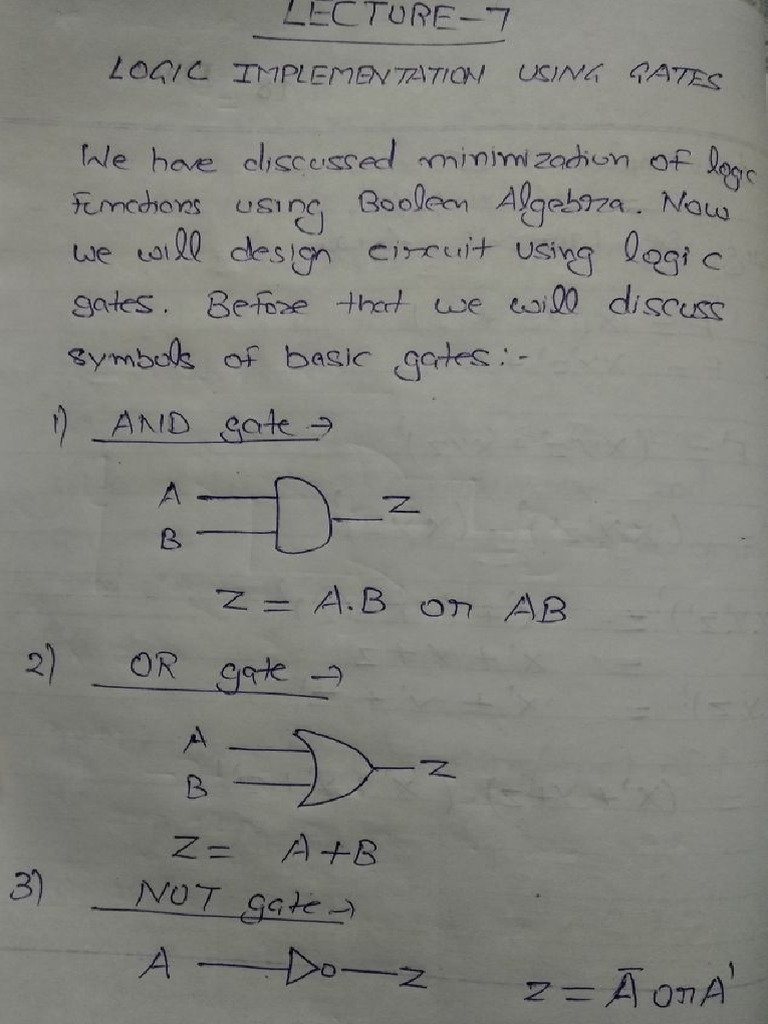 LECTURE-7
LOGIC IMPLEMENTATION USING GATES
We have discussed minimization of logic
functions using Boolean Algebra. Now
we will design circuit using logic
gates. Before that we will discuss
symbols of basic gates:-
1) AND gate →
A
B
Z
Z = A.B or AB
2) OR gate →
A
B
Z
Z = A+B
3) NOT gate →
A
Z
Z = Ā or A'